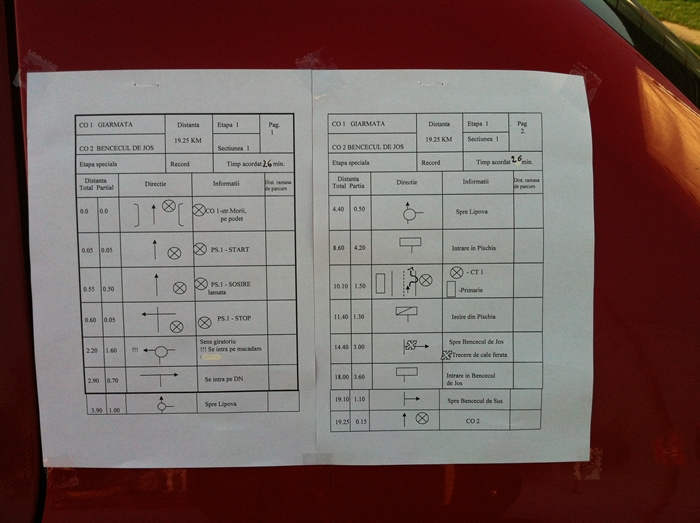 CO 1 GIARMATA Distanta Etapa 1 Pag.
19.25 KM 1
CO 2 BENCECUL DE JOS Sectiunea 1
Etapa speciala Record Timp acordat 26 min.
Distanta Directie Informatii Dist. ramasa
Total Partial de parcurs
0.0 0.0 CO 1-str.Morii,
pe podet
0.05 0.05 PS.1 - START
0.55 0.50 PS.1 - SOSIRE
lansata
0.60 0.05 PS.1 - STOP
2.20 1.60 !!! Sens giratoriu
!!! Se intra pe macadam
2.90 0.70 Se intra pe DN
3.90 1.00 Spre Lipova
CO 1 GIARMATA Distanta Etapa 1 Pag
19.25 KM 2.
CO 2 BENCECUL DE JOS Sectiunea 1
Etapa speciala Record Timp acordat 26 min.
Distanta Directie Informatii Dist. ramasa
Total Partia de parcurs
4.40 0.50 Spre Lipova
8.60 4.20 Intrare in Pischia
10.10 1.50 - CT 1
-Primarie
11.40 1.30 Iesire din Pischia
14.40 3.00 Spre Bencecul de Jos
Trecere de cale ferata
18.00 3.60 Intrare in Bencecul
de Jos
19.10 1.10 Spre Bencecul de Sus
19.25 0.15 CO 2